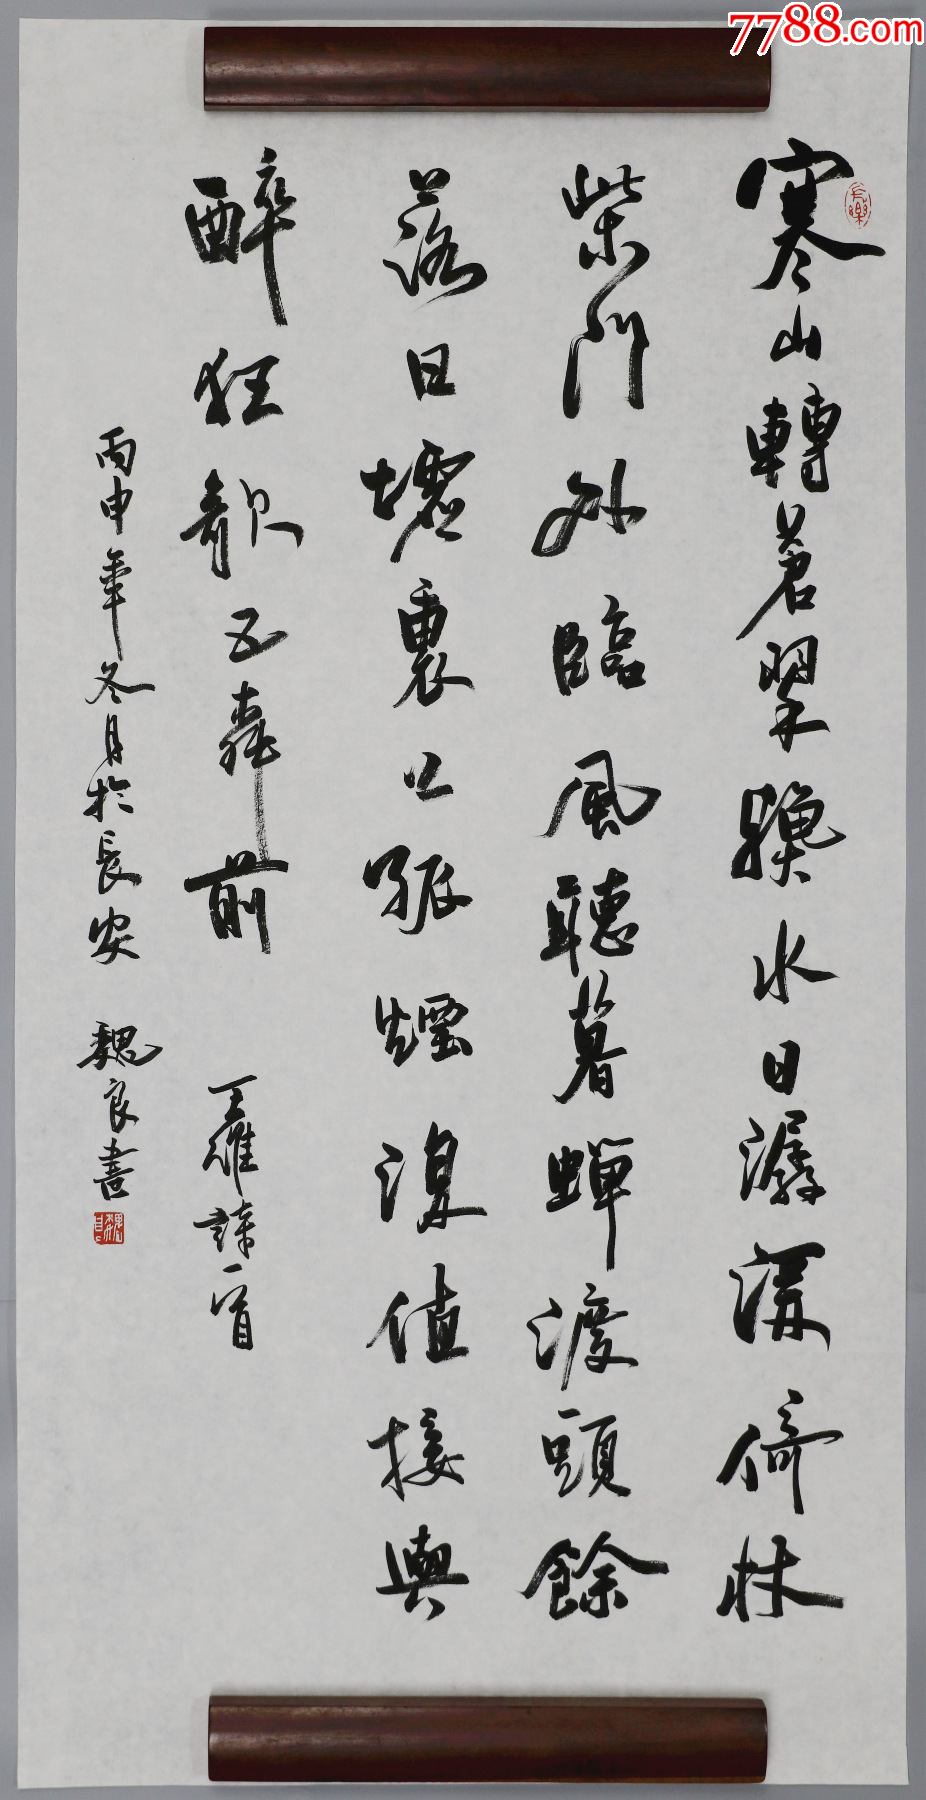 7788.com
長樂
寒山轉蒼翠秋水日潺湲倚杖
柴門外臨風聽暮蟬渡頭餘
落日墟裏上孤煙復值接輿
醉狂歌五柳前 王維詩一首
丙申年冬月於長安 魏良書